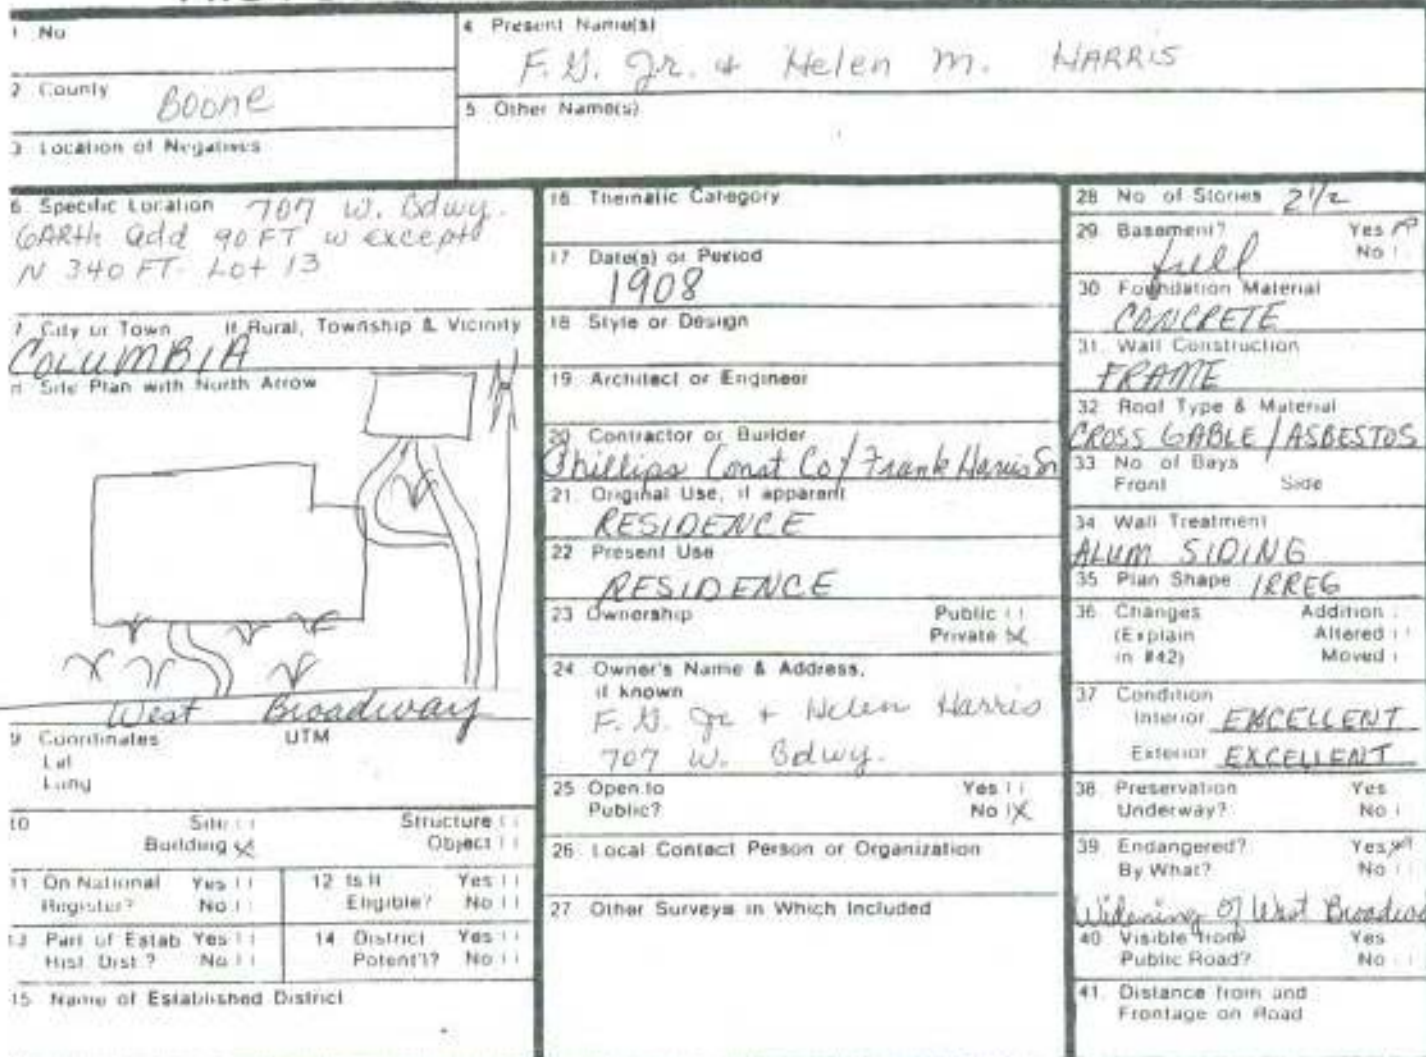 1 No
4 Present Name(s)
F.G. Jr. & Helen M. HARRIS
2 County
Boone
5 Other Name(s)
3 Location of Negatives
6 Specific Location 707 W. Bdwy.
GARth add 90 FT W except
N 340 FT- Lot 13
7 City or Town If Rural, Township & Vicinity
COLUMBIA
8 Site Plan with North Arrow
N
West Broadway
9 Coordinates UTM
Lat
Long
10 Site ( ) Structure ( )
Building (X) Object ( )
11 On National Yes ( )
Register? No ( )
12 Is It Yes ( )
Eligible? No ( )
13 Part of Estab Yes ( )
Hist. Dist.? No ( )
14 District Yes ( )
Potent'l? No ( )
15 Name of Established District
16 Thematic Category
17 Date(s) or Period
1908
18 Style or Design
19 Architect or Engineer
20 Contractor or Builder
Phillips Const Co/ Frank Harris Sr
21. Original Use, if apparent
RESIDENCE
22 Present Use
RESIDENCE
23 Ownership Public ( )
Private (X)
24 Owner's Name & Address,
if known
F.G. Jr + Helen Harris
707 W. Bdwy.
25 Open to Yes ( )
Public? No (X)
26 Local Contact Person or Organization
27 Other Surveys in Which Included
28 No. of Stories 2 1/2
29 Basement? Yes
full No ( )
30 Foundation Material
CONCRETE
31. Wall Construction
FRAME
32 Roof Type & Material
CROSS GABLE / ASBESTOS
33 No. of Bays
Front Side
34 Wall Treatment
ALUM SIDING
35 Plan Shape IRREG
36 Changes Addition
(Explain Altered ( )
in #42) Moved (
37 Condition
Interior EXCELLENT
Exterior EXCELLENT
38 Preservation Yes
Underway? No (
39 Endangered? Yes
By What? No ( )
Widening of West Broadwa
40 Visible from Yes
Public Road? No ( )
41. Distance from and
Frontage on Road